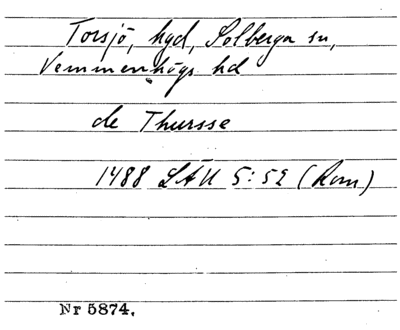 Torsjö, hgd, Solberga sn,
Vemmenhögs hd
de Thursse
1488 LÄU 5:52 (Rom)
Nr 5874.